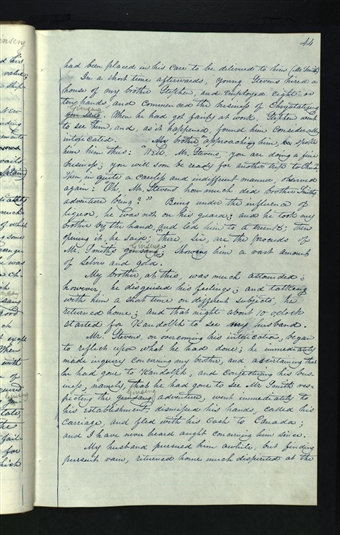 44
had been placed in his care to be delivered to him (Mr. Smith)
In a short time afterwards, young Stevens hired a
house of my brother Stephen, and employed eight or
ten hands, and commenced the business of Chrystalizing
Ginsang. When he had got fairly at work, Stephen went
to see him, and, as it happened, found him considerably
intoxicated. My brother approaching him, he spoke
him thus: "Well, Mr. Stevens, you are doing a fine
business; you will soon be ready for another trip to China
Then in quite a careless and indifferent manner, observed
again: "Oh, Mr. Stevens how much did brother Smith's
adventure bring?" Being under the influence of
liquor, he was not on his guard; and he took my
brother by the hand, and led him to a trunk; then
opening it, he said: there, Sir, are the proceeds of
Mr. Smith's Ginsang; showing him a vast amount
of Silver and gold.
My brother, at this, was much astounded;
however, he disguised his feelings; and talking
with him a short time on different subjects, he
returned home; and that night about 10 o'clock
started for Randolph to see my husband.
Mr. Stevens, on overcoming his intoxication, began
to reflect upon what he had done; he immediately
made inquiry concerning my brother, and ascertaining that
he had gone to Randolph, and conjecturing his bus-
iness, namely, that he had gone to see Mr. Smith res-
pecting the ginsang adventure, went immediately to
his establishment, dismissed his hands, called his
carriage, and fled with his Cash to Canada;
and I have never heard aught concerning him since.
My husband pursued him awhile, but finding
pursuit vain, returned home much dispirited at the